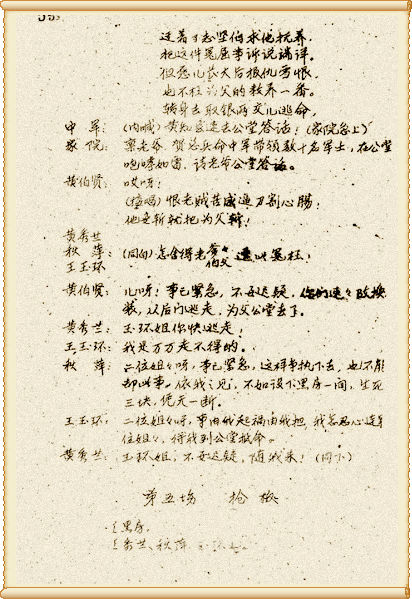 把这件冤屈事诉说端详。
但愿儿长大后报仇雪恨，
也不枉为父的教养一番。
转身去取银两交儿逃命，
中军：(内喊)黄知县速去公堂答话！(家院急上)
家院：禀老爷，贺总兵命中军带领数十名军士，在公堂
咆哮如雷，请老爷公堂答话。
黄伯贤：哎呀！
(接唱)恨老贼 威逼刀割心肠！
他要斩就把为父斩！
黄秀兰
秋萍：(同白)怎舍得老爷 伯父 遭此冤枉！
王玉环
黄伯贤：儿呀！事已紧急，不要迟疑，你们速々改换
装，从后门逃走，为父公堂去了。
黄秀兰：玉环姐你快逃走！
王玉环：我是万万走不得的。
秋萍：二位姐々呀，事已紧急，这样争执下去，也不能
却此事。依我之见，不如设下黑房一间，生死
三块，凭天一断。
王玉环：二位姐々呀，事由我起祸由我担，我怎忍心连累
位姐々，待我到公堂拚命。
黄秀兰：玉环姐，不要迟疑，随我来！(同下)
第五场 抢板
黑房。
秀兰、秋萍、玉环